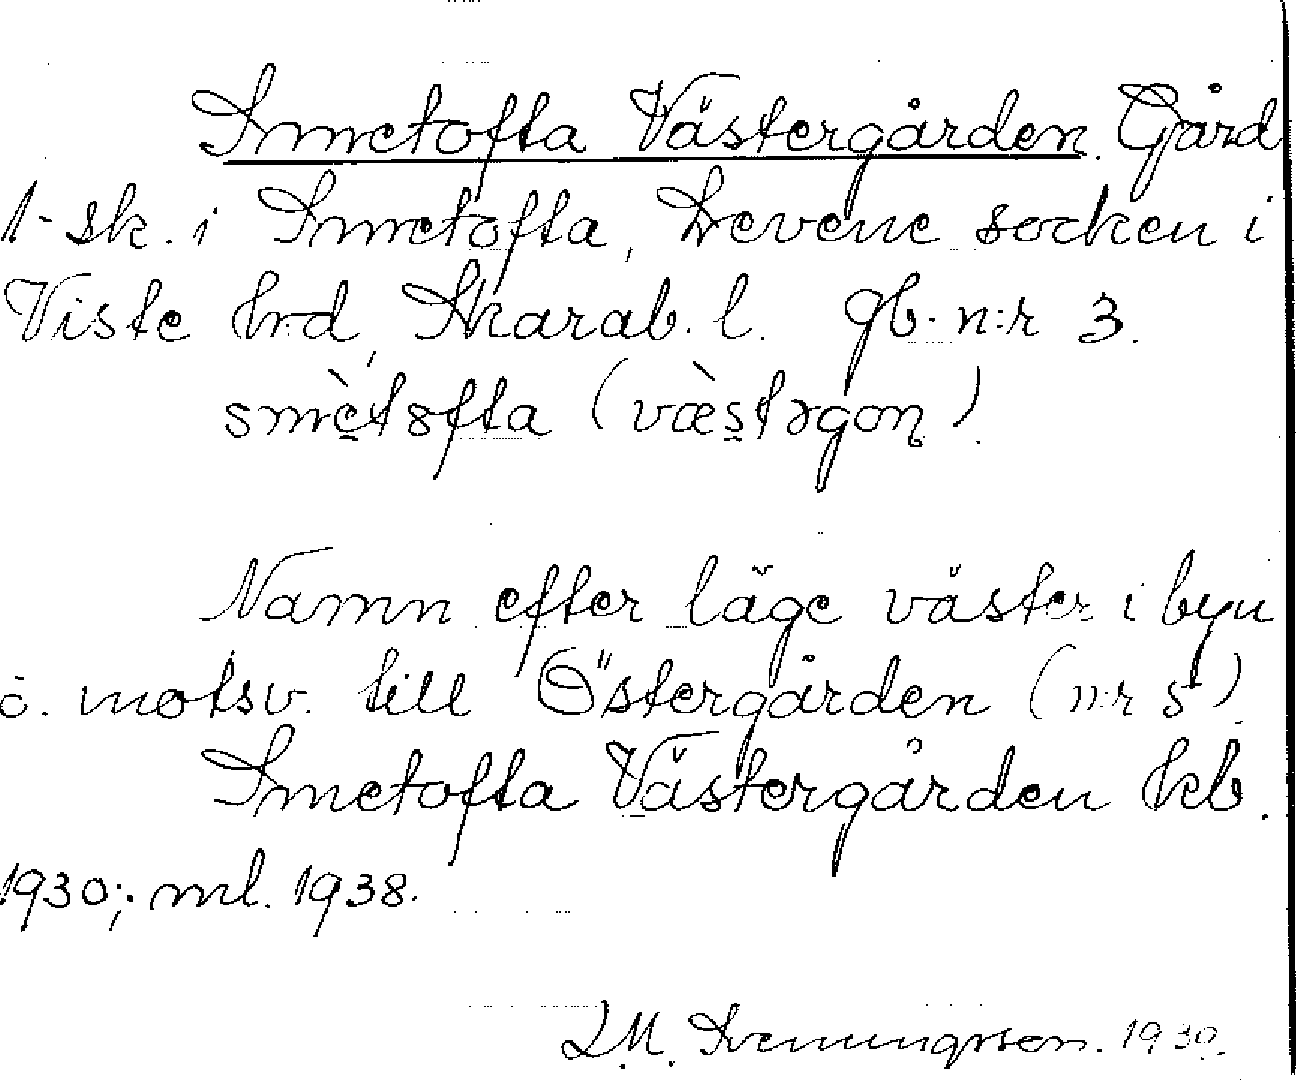 Smetofta Västergården. Gård
1 sk. i Smetofta, Levene socken i
Viste hrd, Skarab. l. gb. n:r 3.
smètofta (væ̀stərgoɳ).
Namn efter läge väster i byn
o. motsv. till Östergården (n:r 5).
Smetofta Västergården kb.
1930; ml. 1938.
1939.